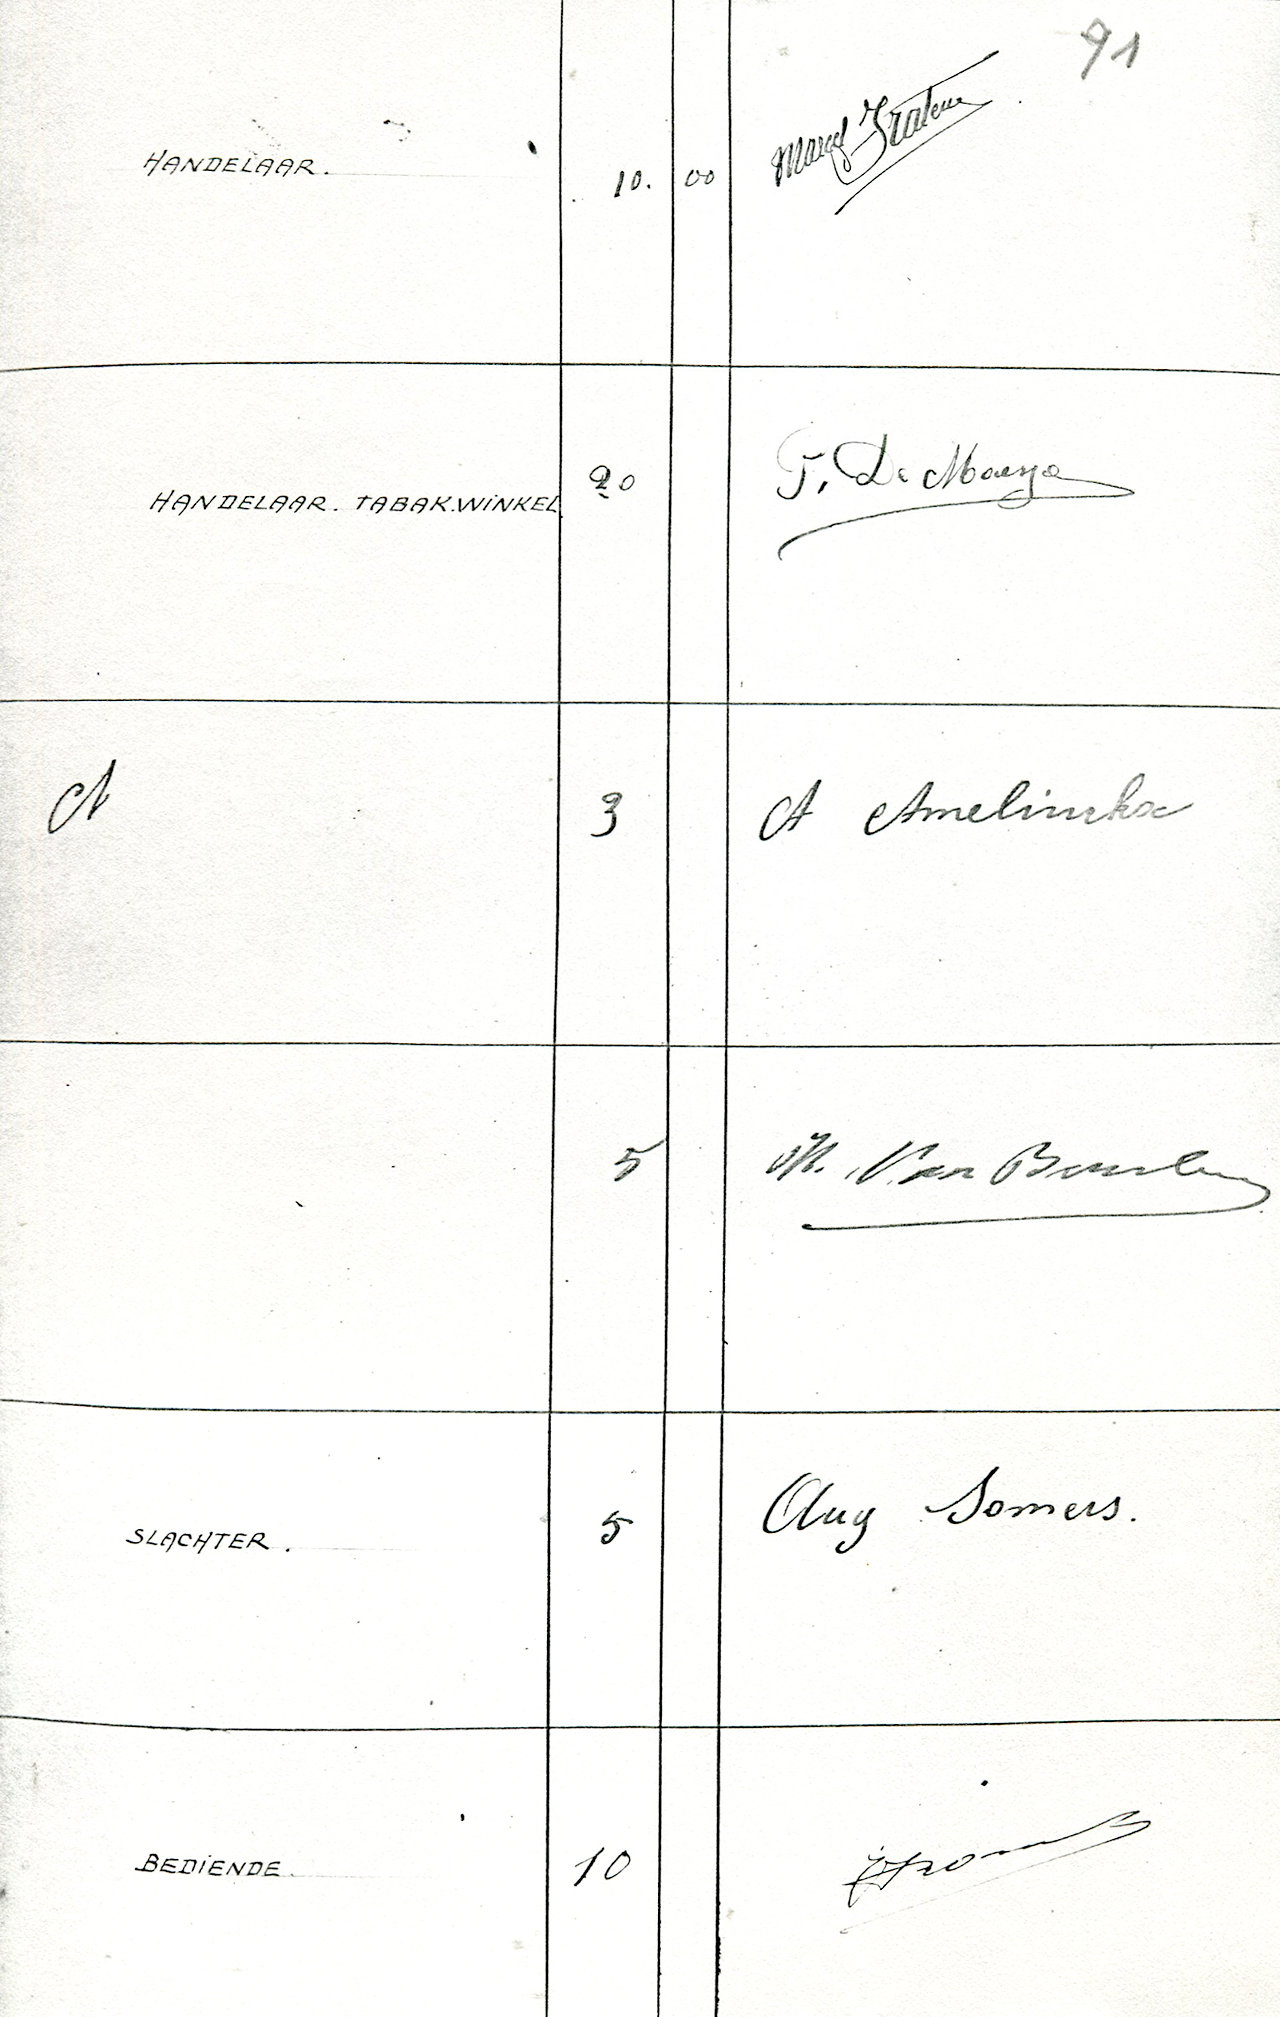 91
HANDELAAR. 10. 00 Marcel
HANDELAAR. TABAK.WINKEL 20 F. De Maeyer
A 3 A Amelinckx
5 M. Van
SLACHTER. 5 Aug Somers.
BEDIENDE. 10